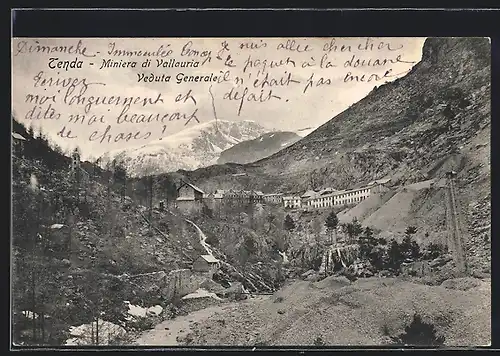 Dimanche - Immaculée Conçon Je suis allée chercher
Tenda - Miniera di Vallauria le paquet à la douane
Veduta Generale il n'était pas encore
défait
Ecrivez
moi longuement et
dites moi beaucoup
de choses!